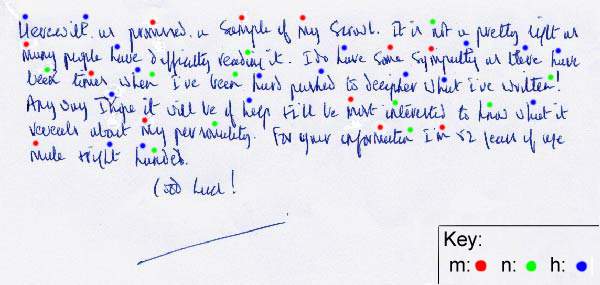 Herewith as promised a sample of my scrawl. It is not a pretty sight as
many people have difficulty reading it. I do have some sympathy as there have
been times when I've been hard pushed to decipher what I've written!
Anyway I hope it will be of help I'll be most interested to know what it
reveals about my personality. For your information I'm 52 years of age
male right handed.
Good Luck!
Key:
m: n: h: